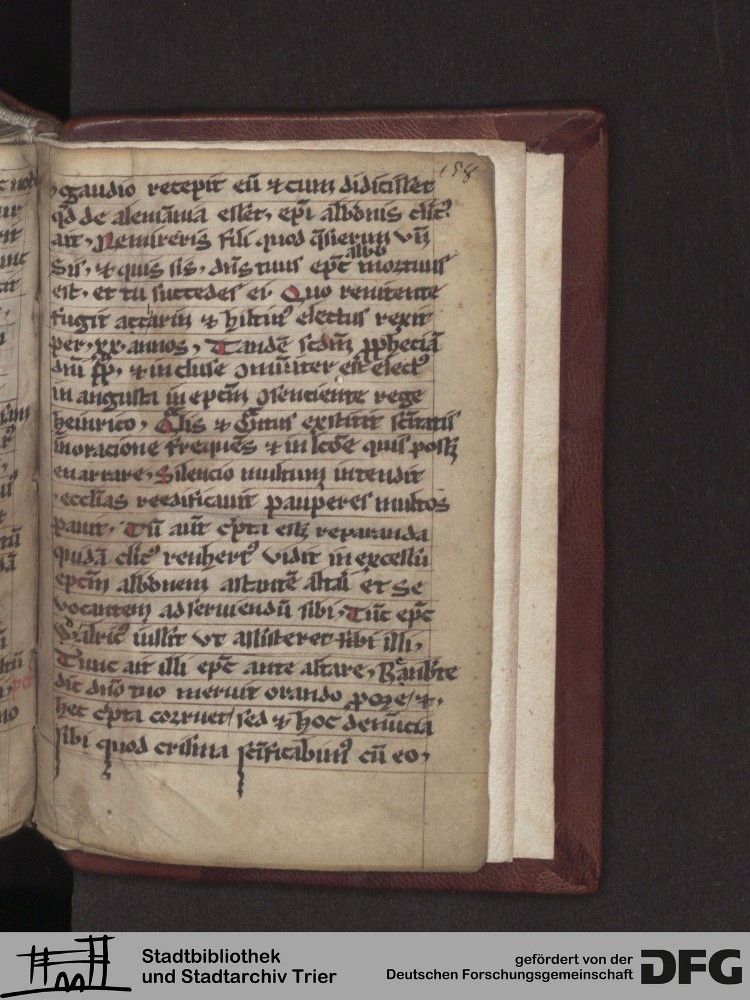 158
gaudio recepit eū ⁊ cum didicisset
qd̄ de alemānia esset, ep̄i albonis cl̄ic᷒
ait, Nemireris fili quod q̄sierim vn̄
Sis, ⁊ quis sis, dn̄s tuus ep̄c albo mortuus
est, et tu succedes ei. Quo renitente
fugit ⁊ hiltin᷒ electus rexit
per, xx, annos, Tandē scdm̄ ꝓpheciā
⁊ incluse est elect᷒
in augusta in ep̄cm ꝯsenciente rege
heinrico, ⁊ exstitit
in oracione frequēs ⁊ in lcōe quis posꝫ
enarrare, Silencio multum intendit
eccl̄ias reedificauit pauperes multos
pauit, Tū aūt c̄pta eēt reparanda
quidā cl̄ic᷒ renhert᷒ vidit in excessu
ep̄cm albonem astantē altāi et Se
vocantem ad seruiendū sibi, Tūc ep̄c
Walric᷒ iussit vt assisteret sibi illi,
Tunc ait illi ep̄c ante altare,
dic dn̄o tuo meruit orando
hec c̄pta corruet, sed ⁊ hoc denūcia
sibi quod crisma sc̄ificabim᷒ cū eo,
Stadtbibliothek
und Stadtarchiv Trier
gefördert von der
Deutschen Forschungsgemeinschaft
DFG